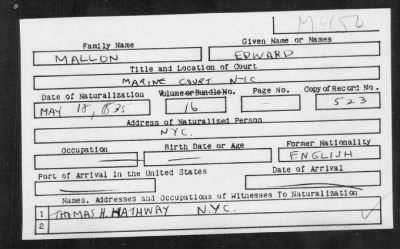 M450
Family Name Given Name or Names
MALLON EDWARD
Title and Location of Court
MARINE COURT NYC
Date of Naturalization Volume or Bundle No. Page No. Copy of Record No.
MAY 18, 1835 16 — 523
Address of Naturalized Person
NYC.
Occupation Birth Date or Age Former Nationality
— — ENGLISH
Port of Arrival in the United States Date of Arrival
— —
Names, Addresses and Occupations of Witnesses To Naturalization
1 THOMAS H. HATHWAY N.Y.C.
2